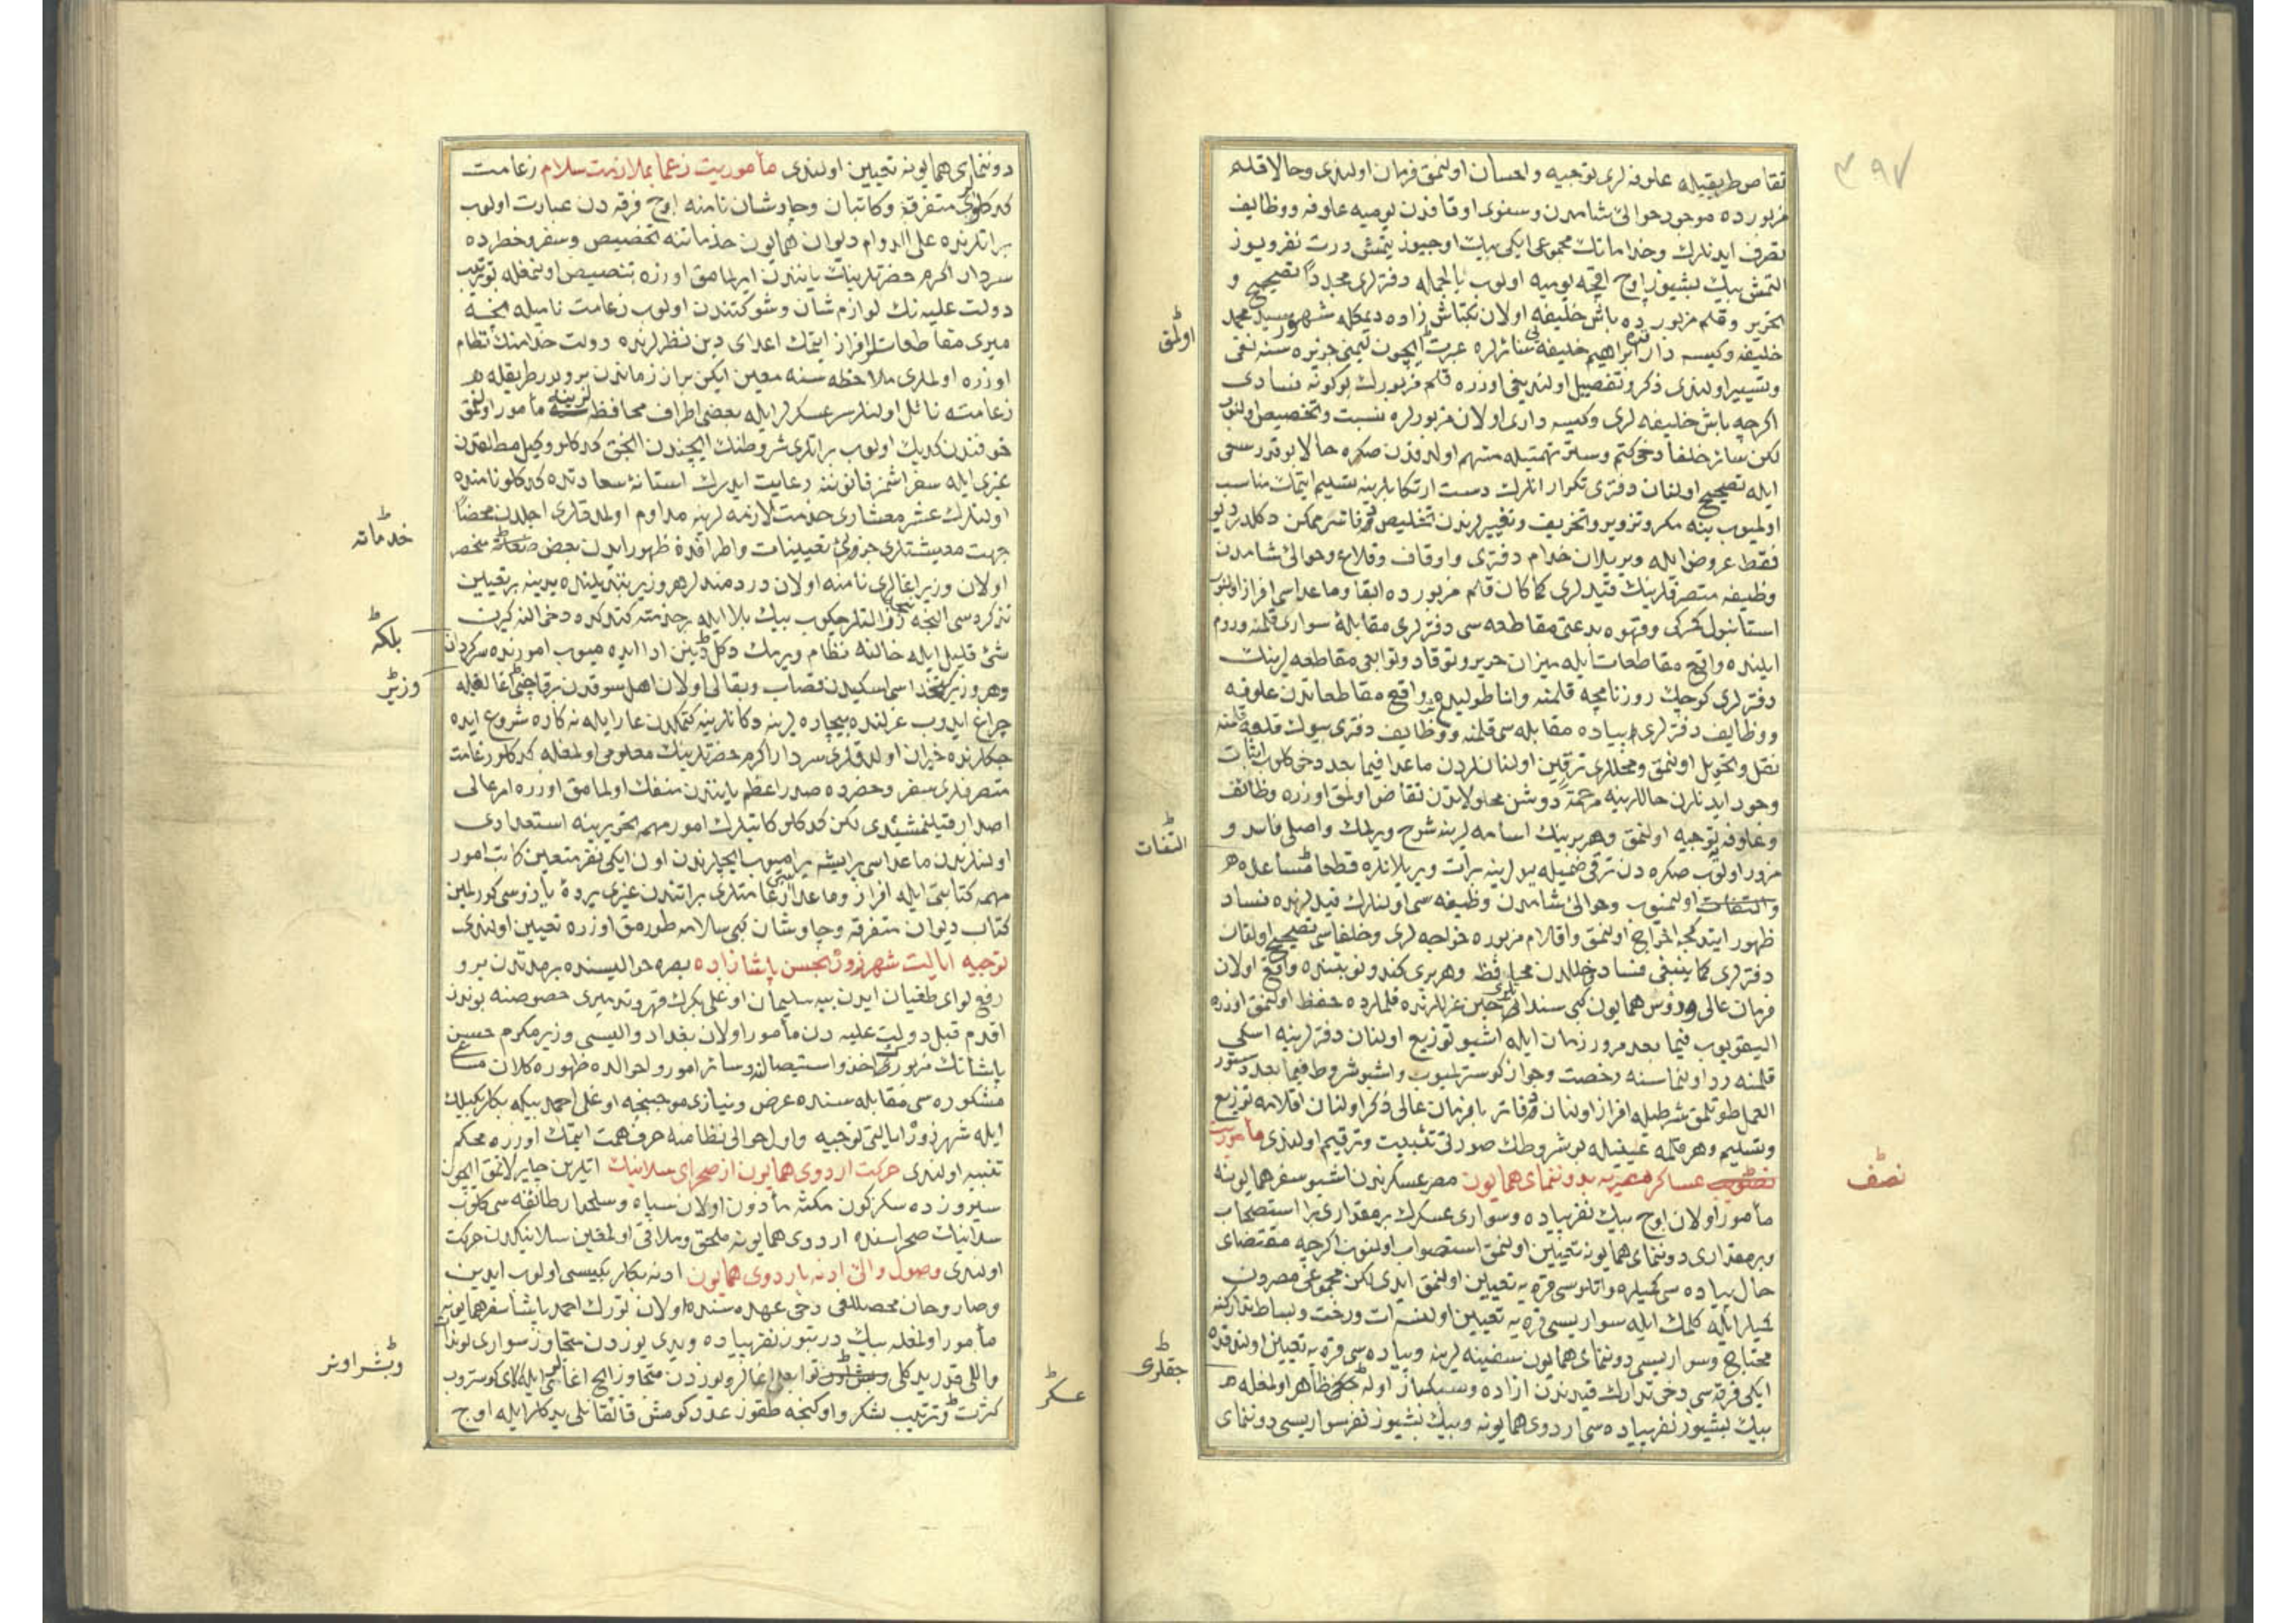 ٣٩٧
تقاص طريقيله علوفه لرى توجيه و احسان اولنمق فرمان اولندى وحالا قلم
مزبورده موجود حوالئ شامدن وسنوى اوقافدن يوميه علوفه ووظايف
تصرف ايدنلرك وخداماتك مجموعى ايكى بيك اوچيوز يتمش درت نفر ويوز
التمش بيك بشيوز اوچ اقچه يوميه اولوب بالجمله دفترلرى مجدداً تصحيح و
تحرير وقلم مزبورده باش خليفه اولان بكتاش زاده ديمكله مشهور سيد محمد
خليفه وكيسه دار ابراهيم خليفه سائرلره عبرت ايچون ليمنى جزيره سنه نفى
وتسيير اولندى ذكر وتفصيل اولنديغى اوزره قلم مزبورك بوكونه فسادى
اكرچه باش خليفه لرى وكيسه دارى اولان مزبورلره نسبت وتخصيص اولنور
لكن سائر خلفا دخى كتم وستر تهمتيله متهم اولدقدن صكره حالا بو قدر سعى
ايله تصحيح اولنان دفترى تكرار انلرك دست ارتكابلرينه تسليم ايتمك مناسب
اولميوب ينه مكر وتزوير وتحريف وتغييرلرندن تخليص دفاتر ممكن دكلدر ديو
فقط عروض ايله ويريلان خدام دفترى واوقاف وقلاع وحوالئ شامدن
وظيفه متصرفلرينك قيدلرى كماكان قلم مزبورده ابقا وماعداسى افراز اولنوب
استانبول كمركى وقهوه بدعتى مقاطعه سى دفترلرى مقابلۀ سوارى قلمنه وروم
ايلنده واقع مقاطعات ايله ميزان حرير وتوقاد وتوابعى مقاطعه لرينك
دفترلرى كوچك روزنامچه قلمنه واناطوليده واقع مقاطعاتدن علوفه
ووظايف دفترلرى پياده مقابله سى قلمنه ووظايف دفترى بيوك قلعه قلمنه
نقل وتحويل اولنمق ومحللرى ترقين اولنانلردن ماعدا فيما بعد دخى كلوب اثبات
وجود ايدنلرك حاللرينه مرحمةً دوشن محلولاتدن تقاض اولمق اوزره وظائف
وعلوفه توجيه اولنمق وهربرينك اسامه لرينه شرح ويرلمك واصلى فاسد و
مزور اولوب صكره دن ترقى ضميله يدلرينه برات ويريلانلره قطعا مساعده
والتفات اولنميوب وحوالئ شامدن وظيفه سى اولنلرك قيدلرنده فساد
ظهور ايتدكجه اخراج اولنمق واقلام مزبوره خواجه لرى وخلفاسى تصحيح اولنان
دفترلرى كما ينبغى فساد وخللدن محافظه وهربرى كندو نوبتنده واقع اولان
فرمان عالى ورؤس همايون كبى سنداتى حين عزللرنده قلملرده حفظ اولنمق اوزره
اليقويوب فيما بعد مرور زمان ايله اشبو توزيع اولنان دفترلرينه اسكى
قلمنه رد اولنماسنه رخصت وجواز كوسترلميوب واشبو شروط فيما بعد دستور
العمل طوتلمق شرطيله افراز اولنان دفاتر با فرمان عالى ذكر اولنان اقلامه توزيع
وتسليم وهر قلمه عينيله بو شروطك صورتى تثبيت وترقيم اولندى مأموريت
عساكر مصريه بدوننماى همايون مصر عسكرندن اشبو سفر همايونه
مأمور اولان اوچ بيك نفر پياده وسوارى عسكرك بر مقدارى برا استصحاب
وبر مقدارى دوننماى همايونه تعيين اولنمق استصواب اولنوب اكرچه مقتضاى
حال پياده سى كميلره واتلوسى قره يه تعيين اولنمق ايدى لكن مجموعى مصردن
كميلر ايله كلمك ايله سواريسى قره يه تعيين اولنسه ات ورخت وبساط تداركنه
محتاج وسواريسى دوننماى همايون سفينه لرينه وپياده سى قره يه تعيين اولندقده
ايكى فرقه سى دخى تدارك قيدندن ازاده وسبكبار اوله جقلرى ظاهر اولمغله
بيك بشيوز نفر پياده سى اردوى همايونه وبيك بشيوز نفر سواريسى دوننماى
اولمق
التفات
نصف
جقلرى
دوننماى همايونه تعيين اولندى مأموريت زعما بملازمت سلام زعامت
كدكلولرى متفرقه وكاتبان وچاوشان نامنه اوچ فرقه دن عبارت اولوب
براتلرنده على الدوام ديوان همايون خدماتنه تخصيص وسفر وحضرده
سردار اكرم حضرتلرينك ياننده ايرلمامق اوزره تنصيص اولنمغله بو ترتيب
دولت عليه نك لوازم شان وشوكتندن اولوب زعامت ناميله بخسه
ميرى مقاطعات افراز ايتمك اعداى دين نظرلرنده دولت خدامنك نظام
اوزره اولملرى ملاحظه سنه معين ايكن بر از زماندن برو بر طريقله
زعامته نائل اولنلر سرعسكرلر ايله بعضى اطراف محافظه لرينه مأمور اولنمق
خوفندن كديك اولوب براتلرى شروطنك ايچندن انجق كدكلو وكيل مطلقدن
غيرى ايله سفر اشمز قانوننه رعايت ايدرك استانۀ سعادتده كدكلو نامنده
اولنلرك عشر معشارى خدمت لازمه لرينه مداوم اولمدقلرى اجلدن محضاً
جهت معيشتلرى جزوى تعيينات واطرافده ظهور ايدن بعض خدماته منحصر
اولان وزير اغالرى نامنه اولان دردمندلر هر وزير تبديلنده يدينه بر تعيين
تذكره سى النجه ذل التلر چكوب بيك بلا ايله خدمته كتدكده دخى النه كيرن
شئ قليل ايله حالنه نظام ويرمك دكل ديين ادا ايده ميوب امورنده سركردان
وهر وزير كتخداسى اسكيدن قصاب وبقالى اولان اهل سوقدن برقاچنى اغالغيله
چراغ ايدوب عزلنده بيچاره لرينه دكانلرينه كتمكدن عار ايله نه كاره شروع ايده
جكلرنده حيران اولدقلرى سردار اكرم حضرتلرينك معلومى اولمغله كدكلو زعامت
متصرفلرى سفر وحضرده صدر اعظم ياننده منفك اولمامق اوزره امر عالى
اصدار قيلنمشيدى لكن كدكلو كاتبلرك امور مهمه تحريرينه استعدادى
اولنلردن ماعداسى بر ايشه يراميوب ايچلرندن اون ايكى نفر متعين كاتب امور
مهمه كتابتى ايله افراز وماعداسى زعامتلرى براتندن غيرى يرده يازوسى كورلمين
كتاب ديوان متفرقه وچاوشان كبى سلامه طورمق اوزره تعيين اولندى
توجيه ايالت شهرزور بحسن پاشا زاده بصره حواليسنده بر مدتدن برو
رفع لواى طغيان ايدن بيه سليمان اوغلى بكرك قهر وتدميرى خصوصنه بوندن
اقدم قبل دولت عليه دن مأمور اولان بغداد واليسى وزير مكرم حسين
پاشانك مزبورى اخذ واستيصالنده وسائر امور ولحوالده ظهوره كلان مساعى
مشكوره سى مقابله سنده عرض ونيازى موجبنجه اوغلى احمد بيكه بكلربكيلك
ايله شهرزور ايالتى توجيه واول حوالى نظامنه صرف همت ايتمك اوزره محكم
تنبيه اولندى حركت اردوى همايون از صحراى سلانيك اتلرين چايرلاتمق ايچون
سيروزده سكز كون مكثه مأذون اولان سپاه وسلحدار طائفه سى كلوب
سلانيك صحراسنده اردوى همايونه ملحق وملاقى اولمغين سلانيكدن حركت
اولندى وصول والئ ادنه باردوى همايون ادنه بكلربكيسى اولوب ايدين
وصاروخان محصللغى دخى عهده سنده اولان تورك احمد پاشا سفر همايونه
مأمور اولمغله بيك دريتوز نفر پياده ويدى يوزدن متجاوز سوارى لوندات
واللى قدر يدكلى توابع اغالر ويوزدن متجاوز ايچ اغالرى ايله الاى كوستروب
كثرت وترتيب لشكر واوكنجه طقوز عدد كومش قالقانلى يدكلر ايله اوچ
خدماته
بلكه
وزير
وبشر اونر
عسكر